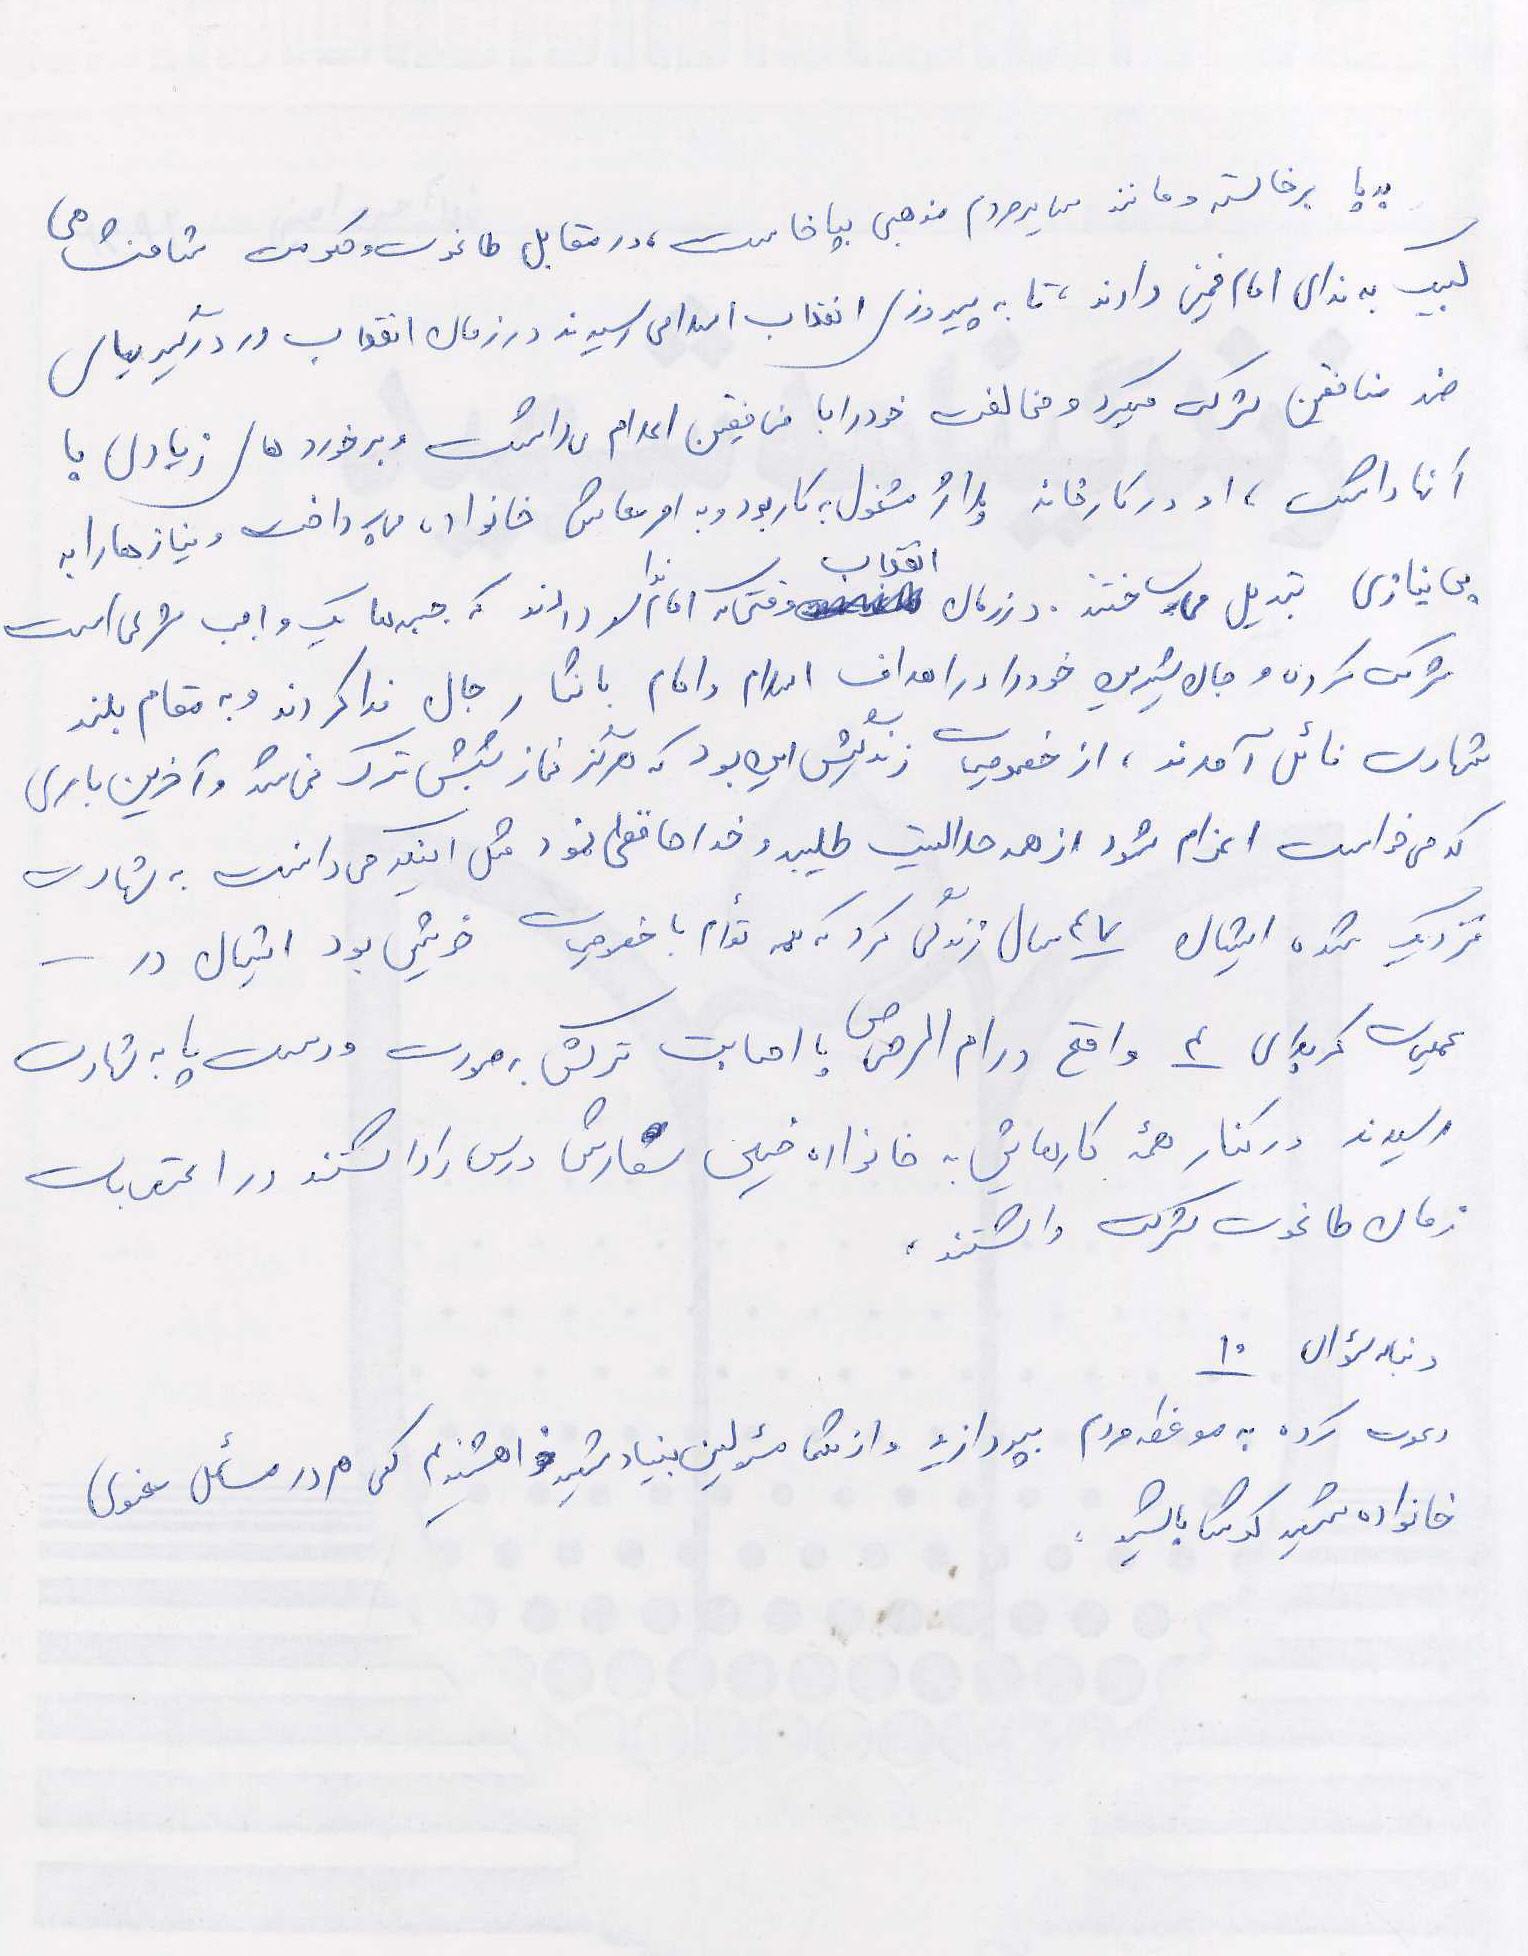 بپا برخاسته و مانند سایر مردم مذهبی بپا خاست، در مقابل طاغوت و حکومت شاهنشاهی
لبیک به ندای امام خمینی دادند، تا به پیروزی انقلاب اسلامی رسیدند در زمان انقلاب در درگیریهای
ضد منافقین شرکت میکرد و مخالفت خود را با منافقین اعلام می‌داشت و برخوردهای زیادی با
آنها داشت، او در کارخانه مشغول به کار بود و به امر معاش خانواده می‌پرداخت و نیازها را به
بی نیازی تبدیل می‌ساختند. در زمان انقلاب وقتی که امام ندا دادند که جبهه ها یک واجب شرعی است
شرکت کرده و جان شیرین خود را در اهداف اسلام و امام با نثار جان فدا کردند و به مقام بلند
شهادت نائل آمدند، از خصوصیات زندگیش این بود که هرگز نماز شبش ترک نمی‌شد و آخرین باری
که می‌خواست اعزام شود از همه حلالیت طلبید و خداحافظی نمود مثل اینکه می‌دانست به شهادت
نزدیک شده ایشان ۴۷ سال زندگی کرد که همه توأم با خصوصیات خوبش بود ایشان در –
عملیات کربلای ۴ واقع در ام الرصاص با اصابت ترکش به صورت و دست پا به شهادت
رسیدند در کنار همهٔ کارهایش به خانواده خیلی سفارش درس را داشتند در اعتصابات
زمان طاغوت شرکت داشتند.
دنباله سؤال ۱۰
دعوت کرده به موعظه مردم بپردازید و از شما مسئولین بنیاد شهید خواهشمندم کمی هم در مسائل معنوی
خانواده شهید کوشا باشید.